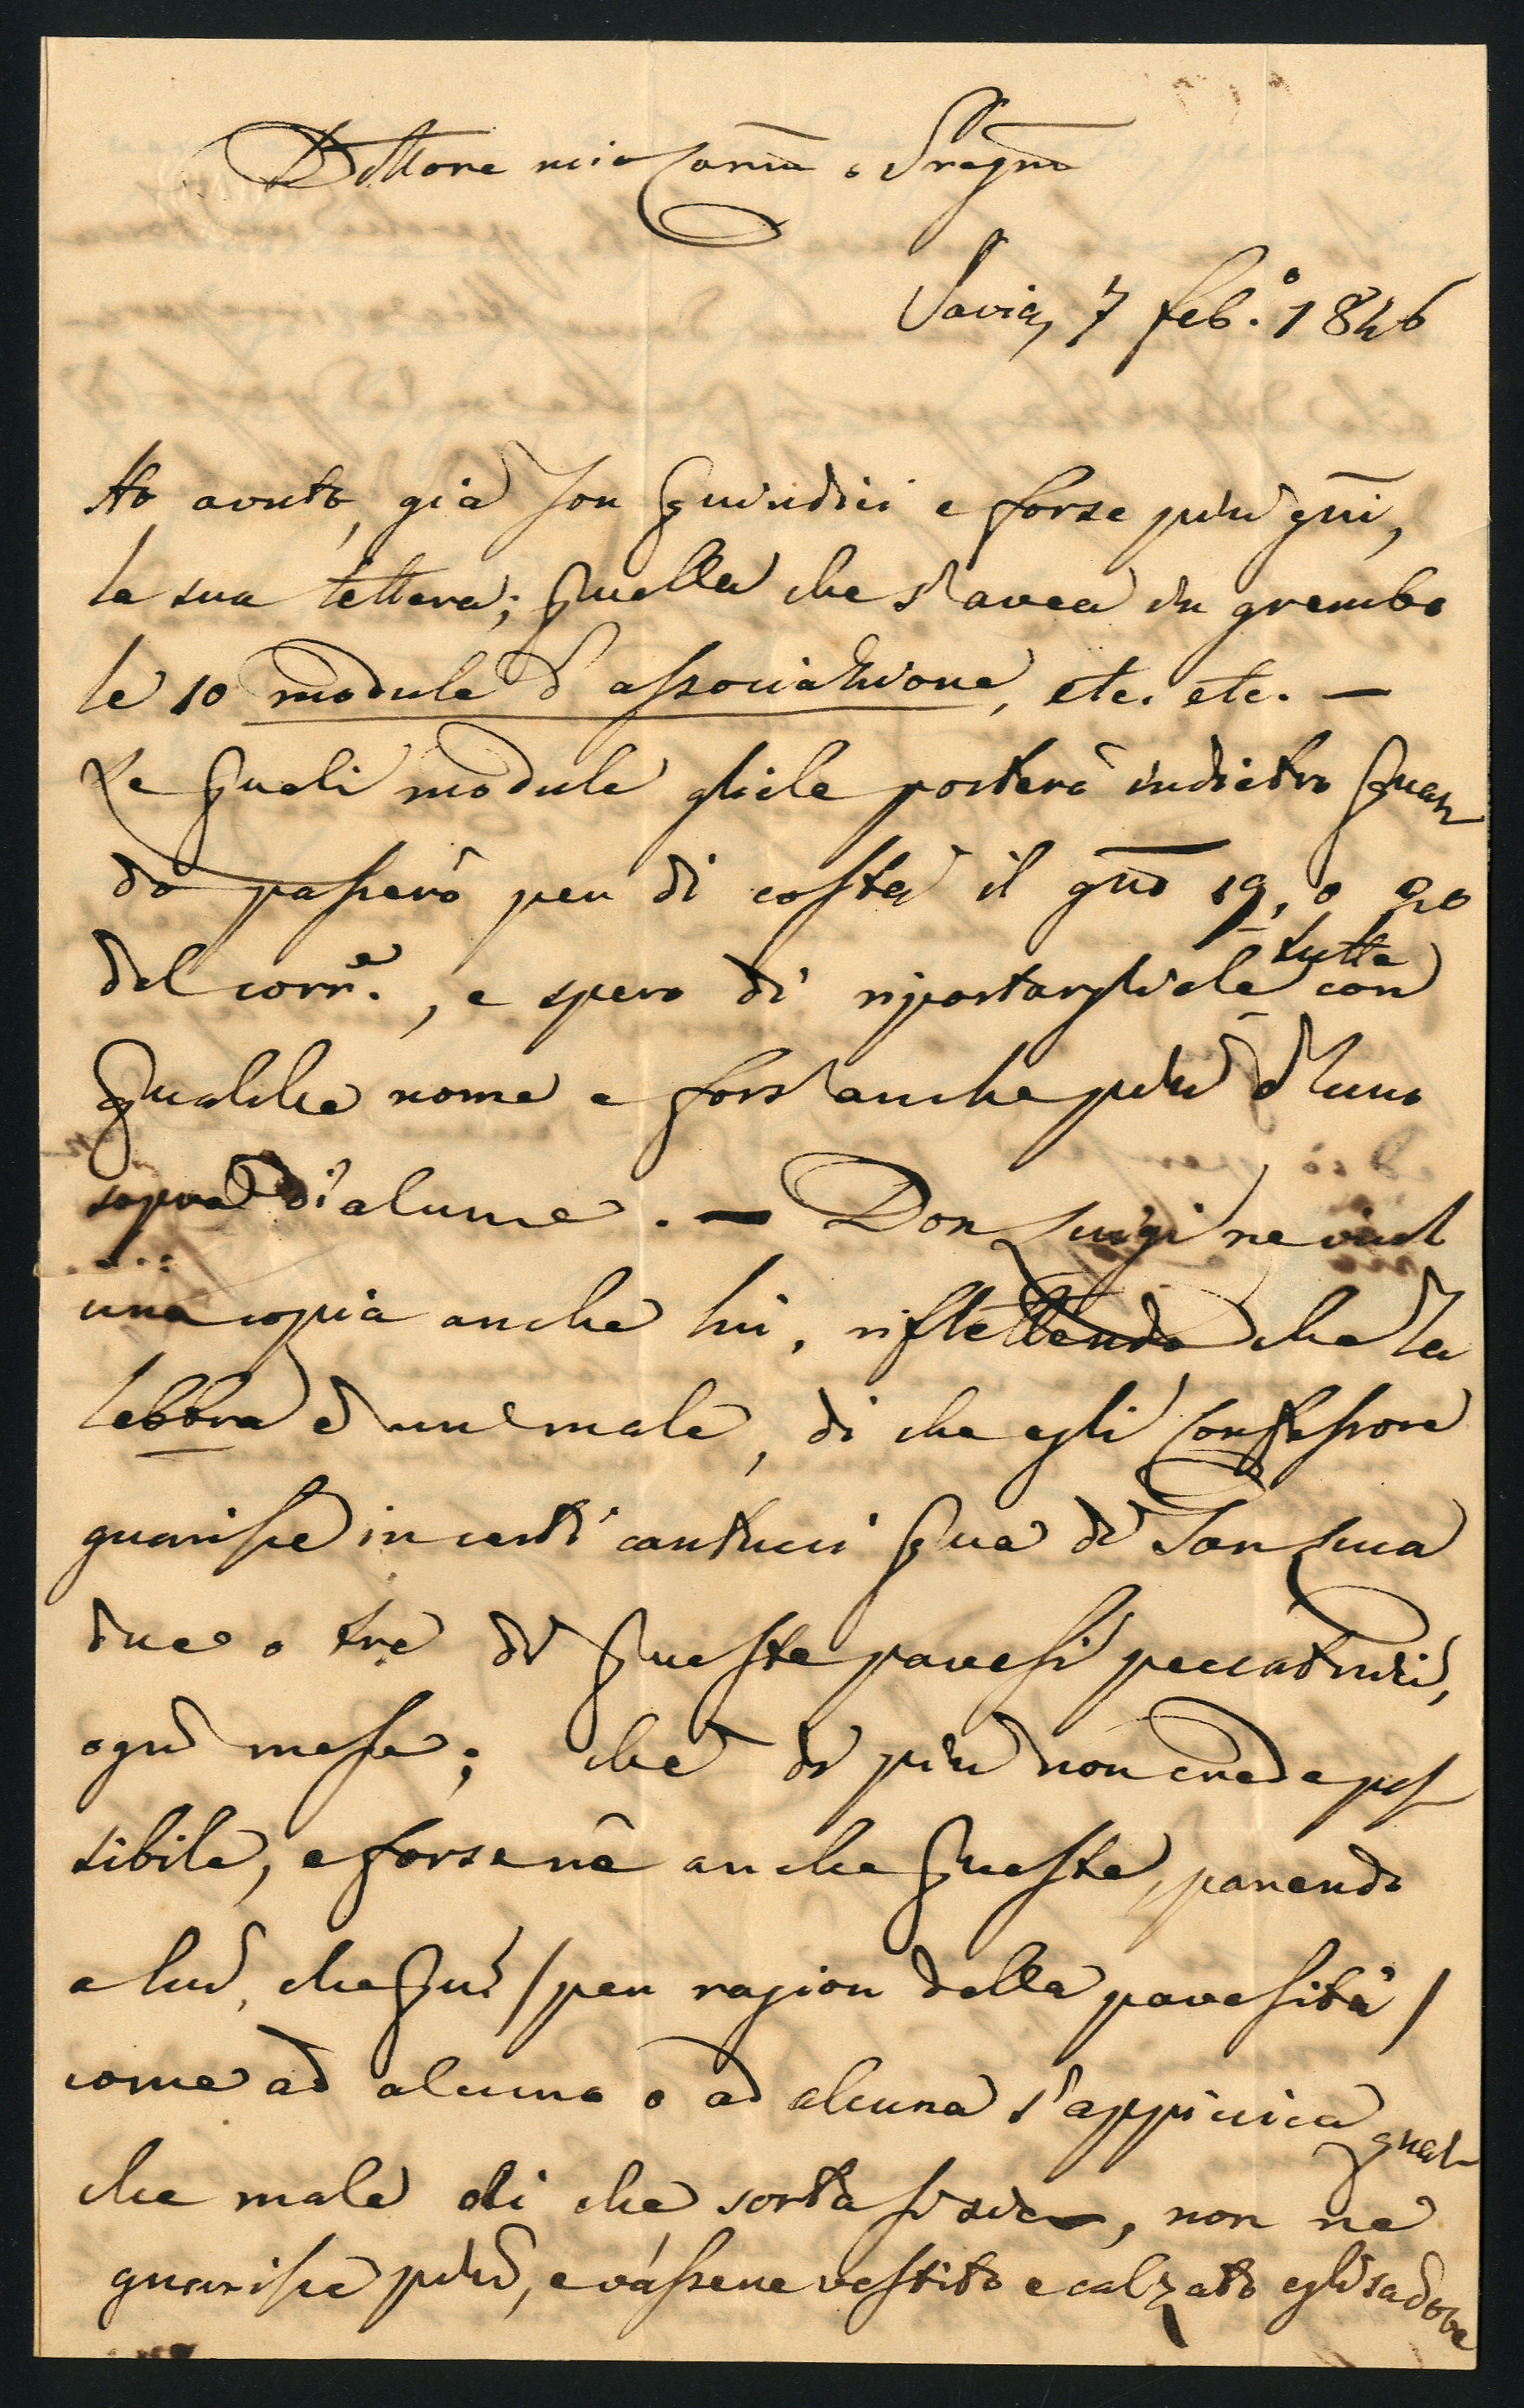 Dottore mio Carmo e Pregmo
Pavia, 7 feb.° 1846
Ho avuto, già son quindici e forse più gni,
la sua lettera; quella che s'avea in grembo
le 10 module d'associazione, etc. etc. —
Le quali module gliele porterò indietro quan
do passerò per di costà il gno 19, o 20
del corre., e spero di riportargliele tutte con
qualche nome e fors'anche più d'uno
sopra di alcune. — Don Luigi ne vuol
una copia anche lui, riflettendo che la
lebbra è un male, di che egli Confessore
guarisce in certi cantucci qua di San Luca
due o tre di queste pavesi peccatrici,
ogni mese; che di più non crede pos
sibile, e forse nè anche queste, parendo
a lui, che qui (per ragion della pavesità)
come ad alcuno o ad alcuna s'appiccica qual
che male di che sorta si sia, non ne
guarisce più, e vassene vestito e calzato egli sa dove